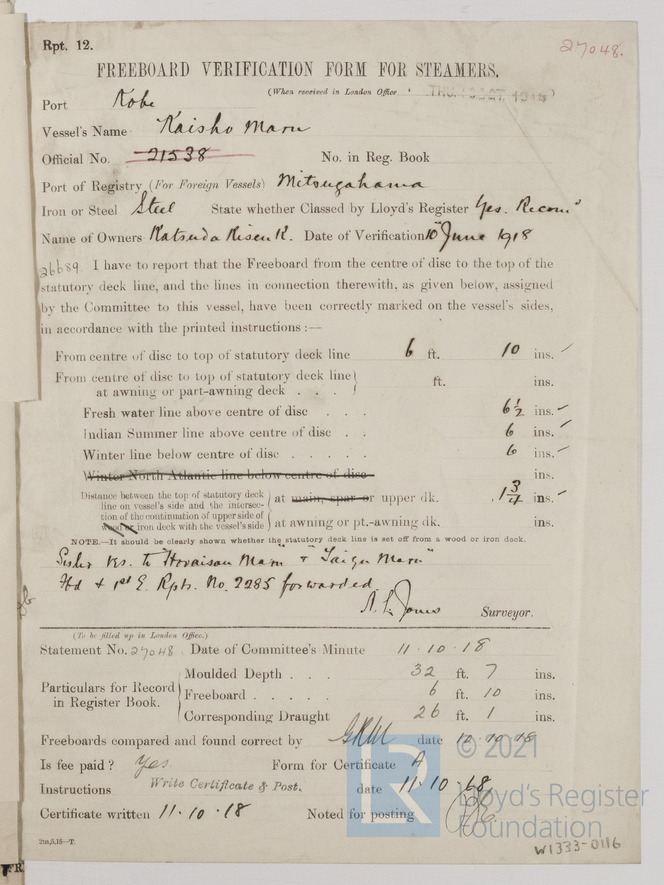 Rpt. 12.
27048.
FREEBOARD VERIFICATION FORM FOR STEAMERS.
(When received in London Office THU. OCT. 1918)
Port Kobe
Vessel's Name Kaisho Maru
Official No. 21538 No. in Reg. Book
Port of Registry (For Foreign Vessels) Mitsugahama
Iron or Steel Steel State whether Classed by Lloyd's Register Yes. Recom^d
Name of Owners Katsuda Kisen K. Date of Verification 10th June 1918
26689. I have to report that the Freeboard from the centre of disc to the top of the
statutory deck line, and the lines in connection therewith, as given below, assigned
by the Committee to this vessel, have been correctly marked on the vessel's sides,
in accordance with the printed instructions :—
From centre of disc to top of statutory deck line 6 ft. 10 ins.
From centre of disc to top of statutory deck line
at awning or part-awning deck . . . ft. ins.
Fresh water line above centre of disc . . . 6½ ins.
Indian Summer line above centre of disc . . 6 ins.
Winter line below centre of disc . . . . . 6 ins.
Winter North Atlantic line below centre of disc ins.
Distance between the top of statutory deck
line on vessel's side and the intersec-
tion of the continuation of upper side of
wood or iron deck with the vessel's side
at main, spar or upper dk. 1¾ ins.
at awning or pt.-awning dk. ins.
NOTE.—It should be clearly shown whether the statutory deck line is set off from a wood or iron deck.
Sister Vs. to "Hovaisan Maru" & "Taigu Maru"
Fbd & 1st E. Rpts. No. 2285 forwarded
A. L. Jones Surveyor.
(To be filled up in London Office.)
Statement No. 27048 Date of Committee's Minute 11.10.18
Particulars for Record
in Register Book.
Moulded Depth . . . 32 ft. 7 ins.
Freeboard . . . . . 6 ft. 10 ins.
Corresponding Draught 26 ft. 1 ins.
Freeboards compared and found correct by date 12.10.18
Is fee paid? Yes. Form for Certificate A
Instructions Write Certificate & Post. date 11.10.18
Certificate written 11.10.18 Noted for posting
2m,5,15—T.
W1333-0116
© 2021
Lloyd's Register
Foundation
LR